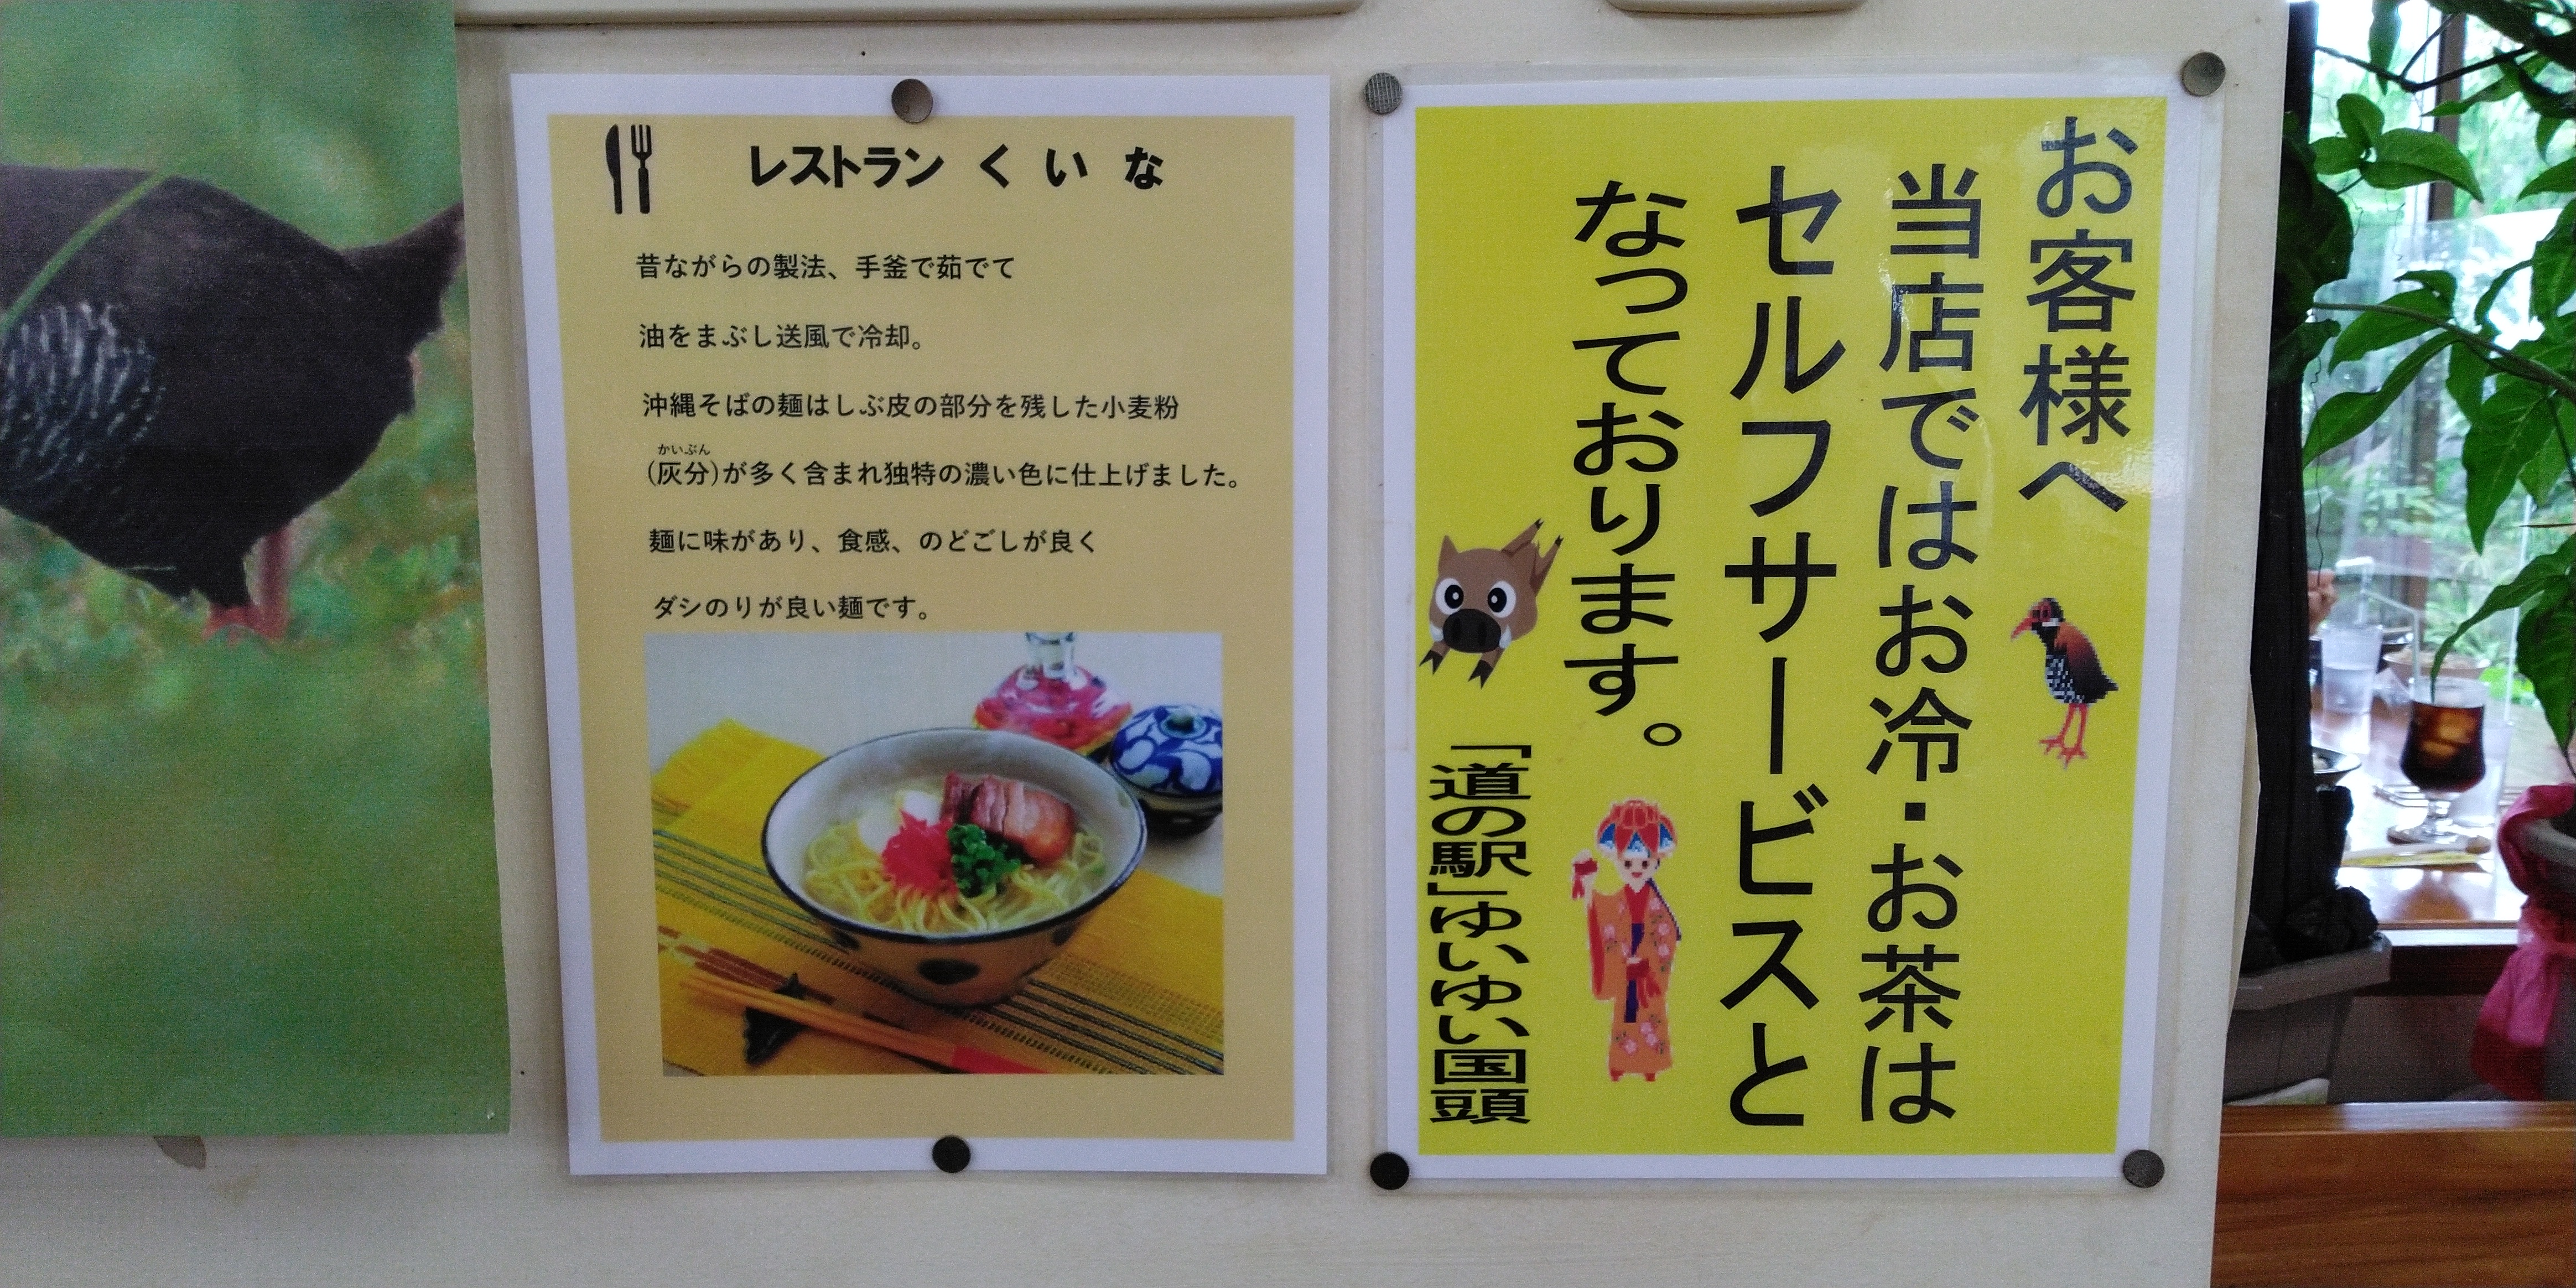 レストラン くいな
昔ながらの製法、手釜で茹でて
油をまぶし送風で冷却。
沖縄そばの麺はしぶ皮の部分を残した小麦粉
かいぶん
(灰分)が多く含まれ独特の濃い色に仕上げました。
麺に味があり、食感、のどごしが良く
ダシのりが良い麺です。
お客様へ
当店ではお冷・お茶は
セルフサービスと
なっております。
「道の駅」ゆいゆい国頭